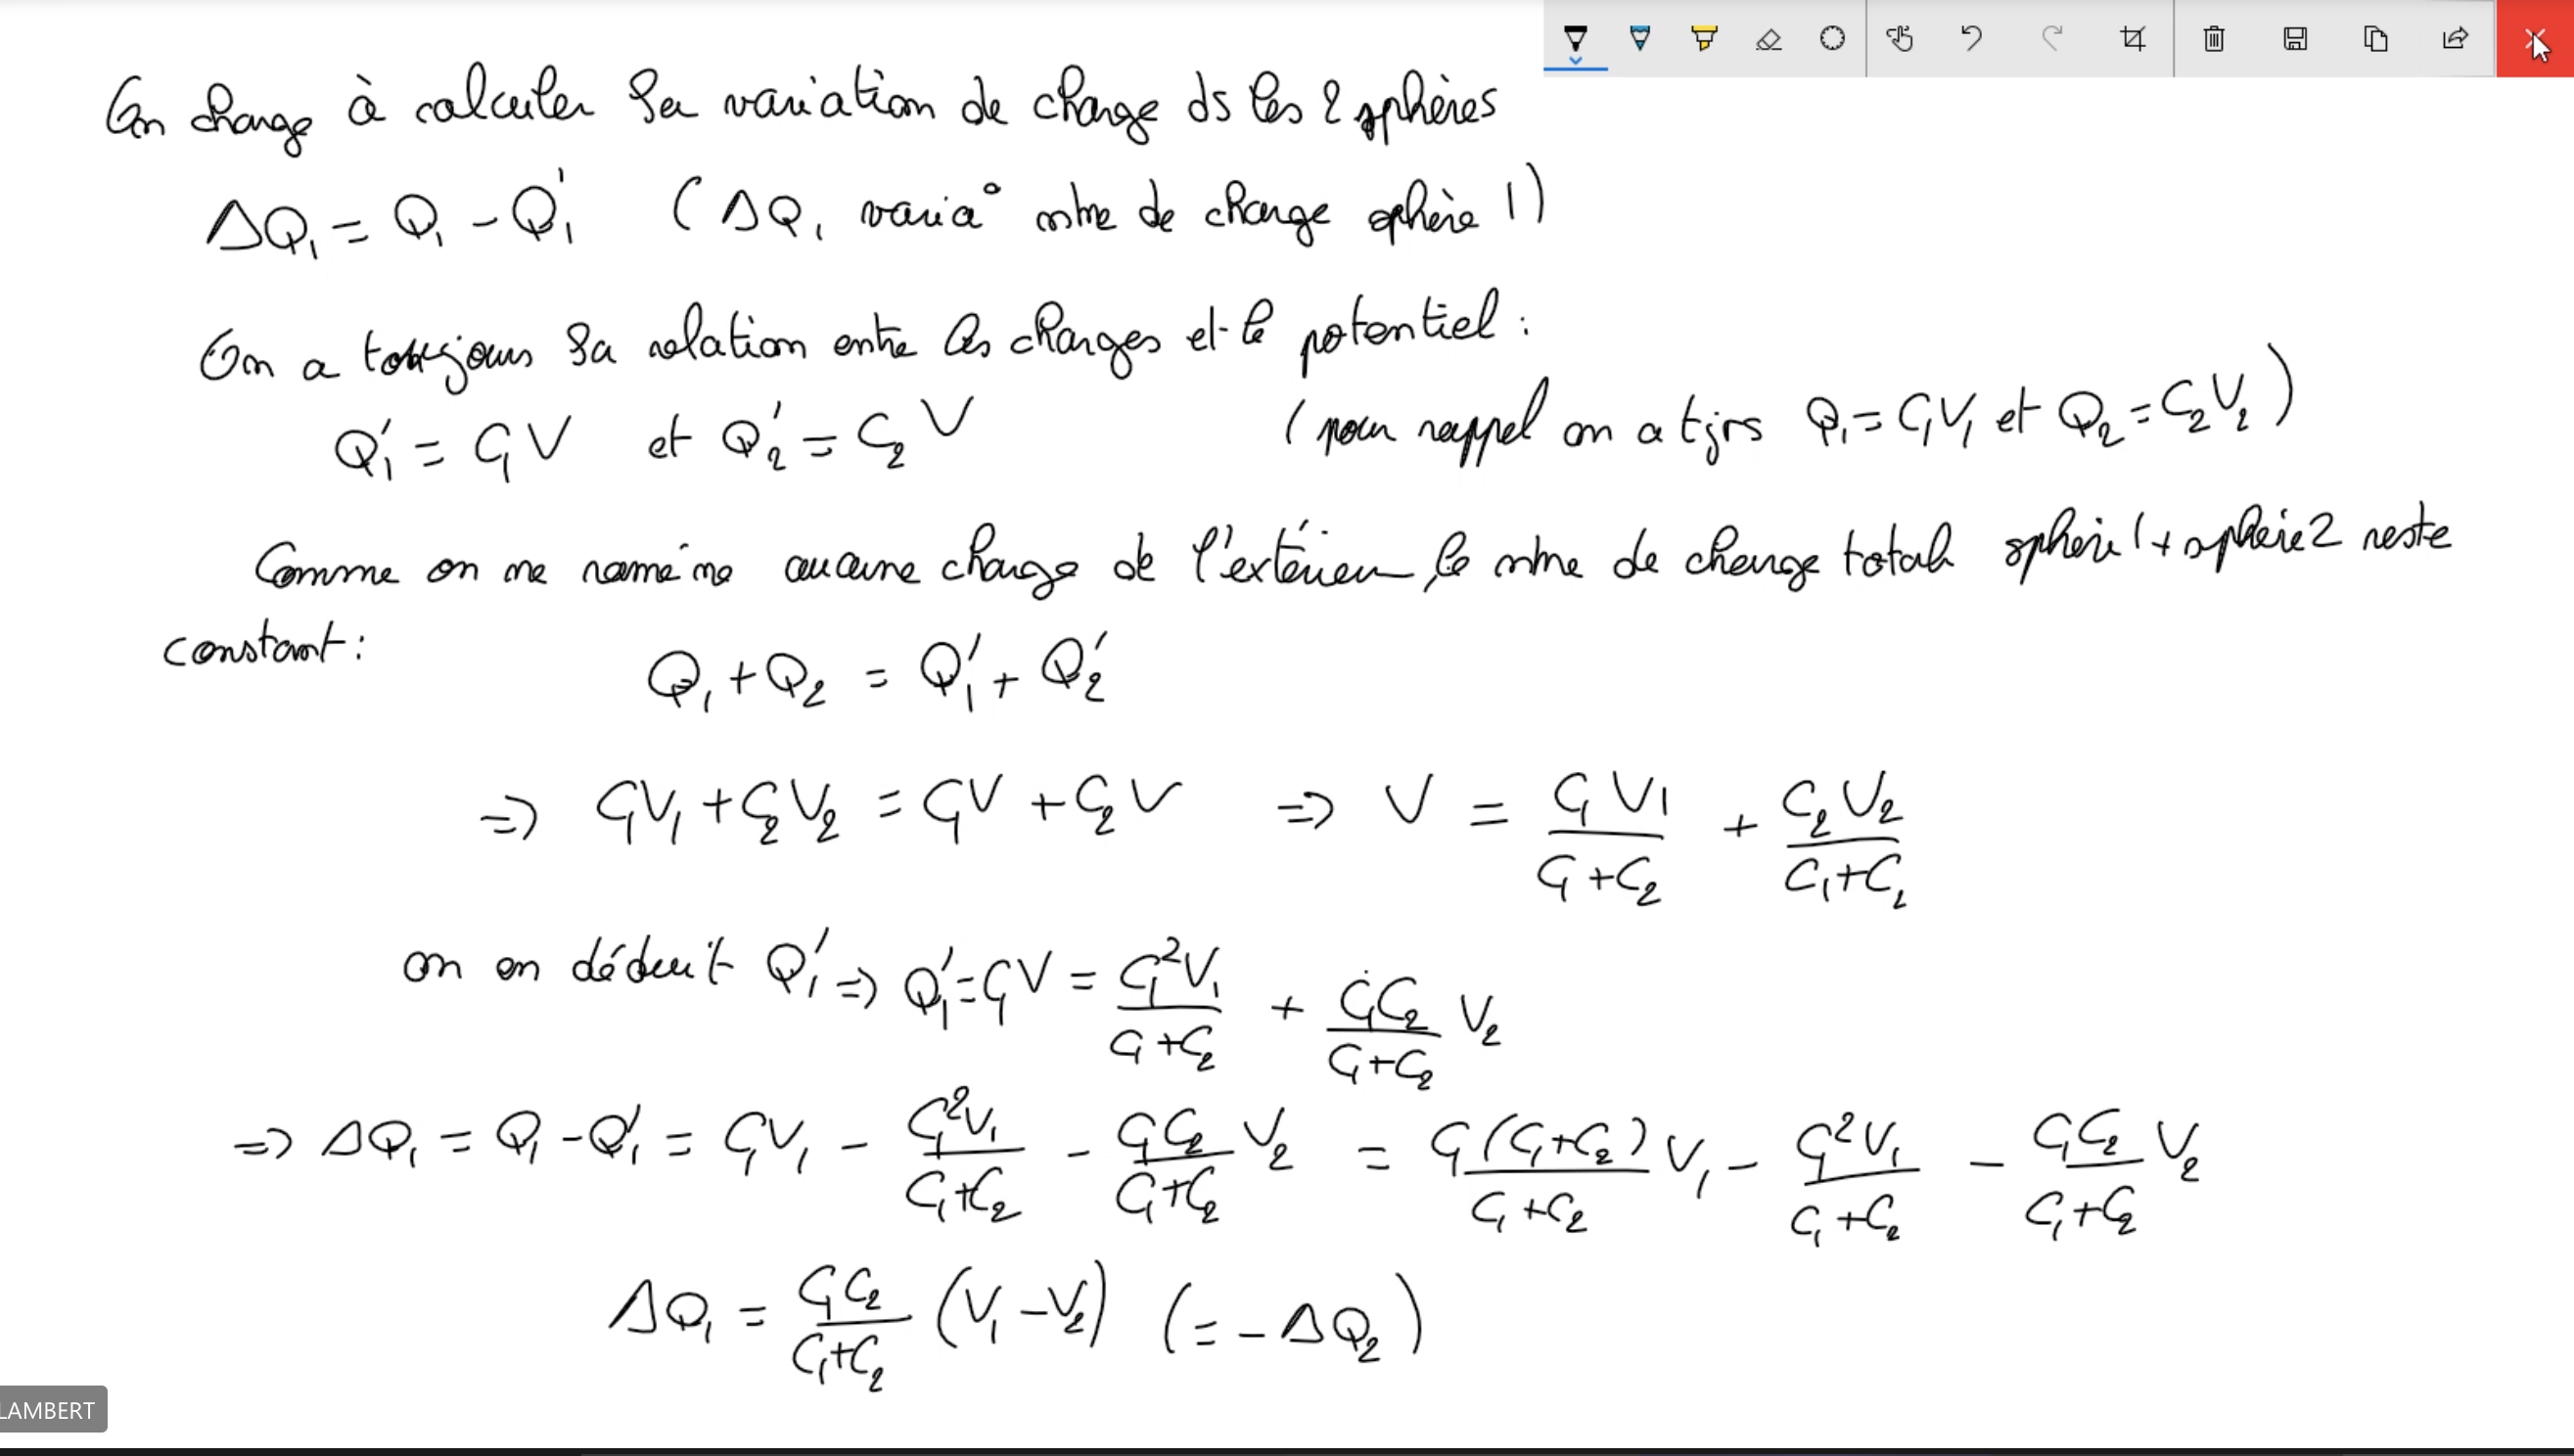 On charge à calculer la variation de charge ds les 2 sphères
ΔQ₁ = Q₁ - Q₁' (ΔQ₁ varia° nbre de charge sphère 1)
On a toujours la relation entre les charges et le potentiel :
Q₁' = C₁V et Q₂' = C₂V (pour rappel on a tjrs Q₁ = C₁V₁ et Q₂ = C₂V₂)
Comme on ne ramène aucune charge de l'extérieur, le nbre de charge total sphère 1 + sphère 2 reste
constant :
Q₁ + Q₂ = Q₁' + Q₂'
=> C₁V₁ + C₂V₂ = C₁V + C₂V => V = C₁V₁/(C₁+C₂) + C₂V₂/(C₁+C₂)
on en déduit Q₁' => Q₁' = C₁V = C₁²V₁/(C₁+C₂) + C₁C₂/(C₁+C₂) V₂
=> ΔQ₁ = Q₁ - Q₁' = C₁V₁ - C₁²V₁/(C₁+C₂) - C₁C₂/(C₁+C₂) V₂ = C₁(C₁+C₂)/(C₁+C₂) V₁ - C₁²V₁/(C₁+C₂) - C₁C₂/(C₁+C₂) V₂
ΔQ₁ = C₁C₂/(C₁+C₂) (V₁ - V₂) (= - ΔQ₂)
LAMBERT